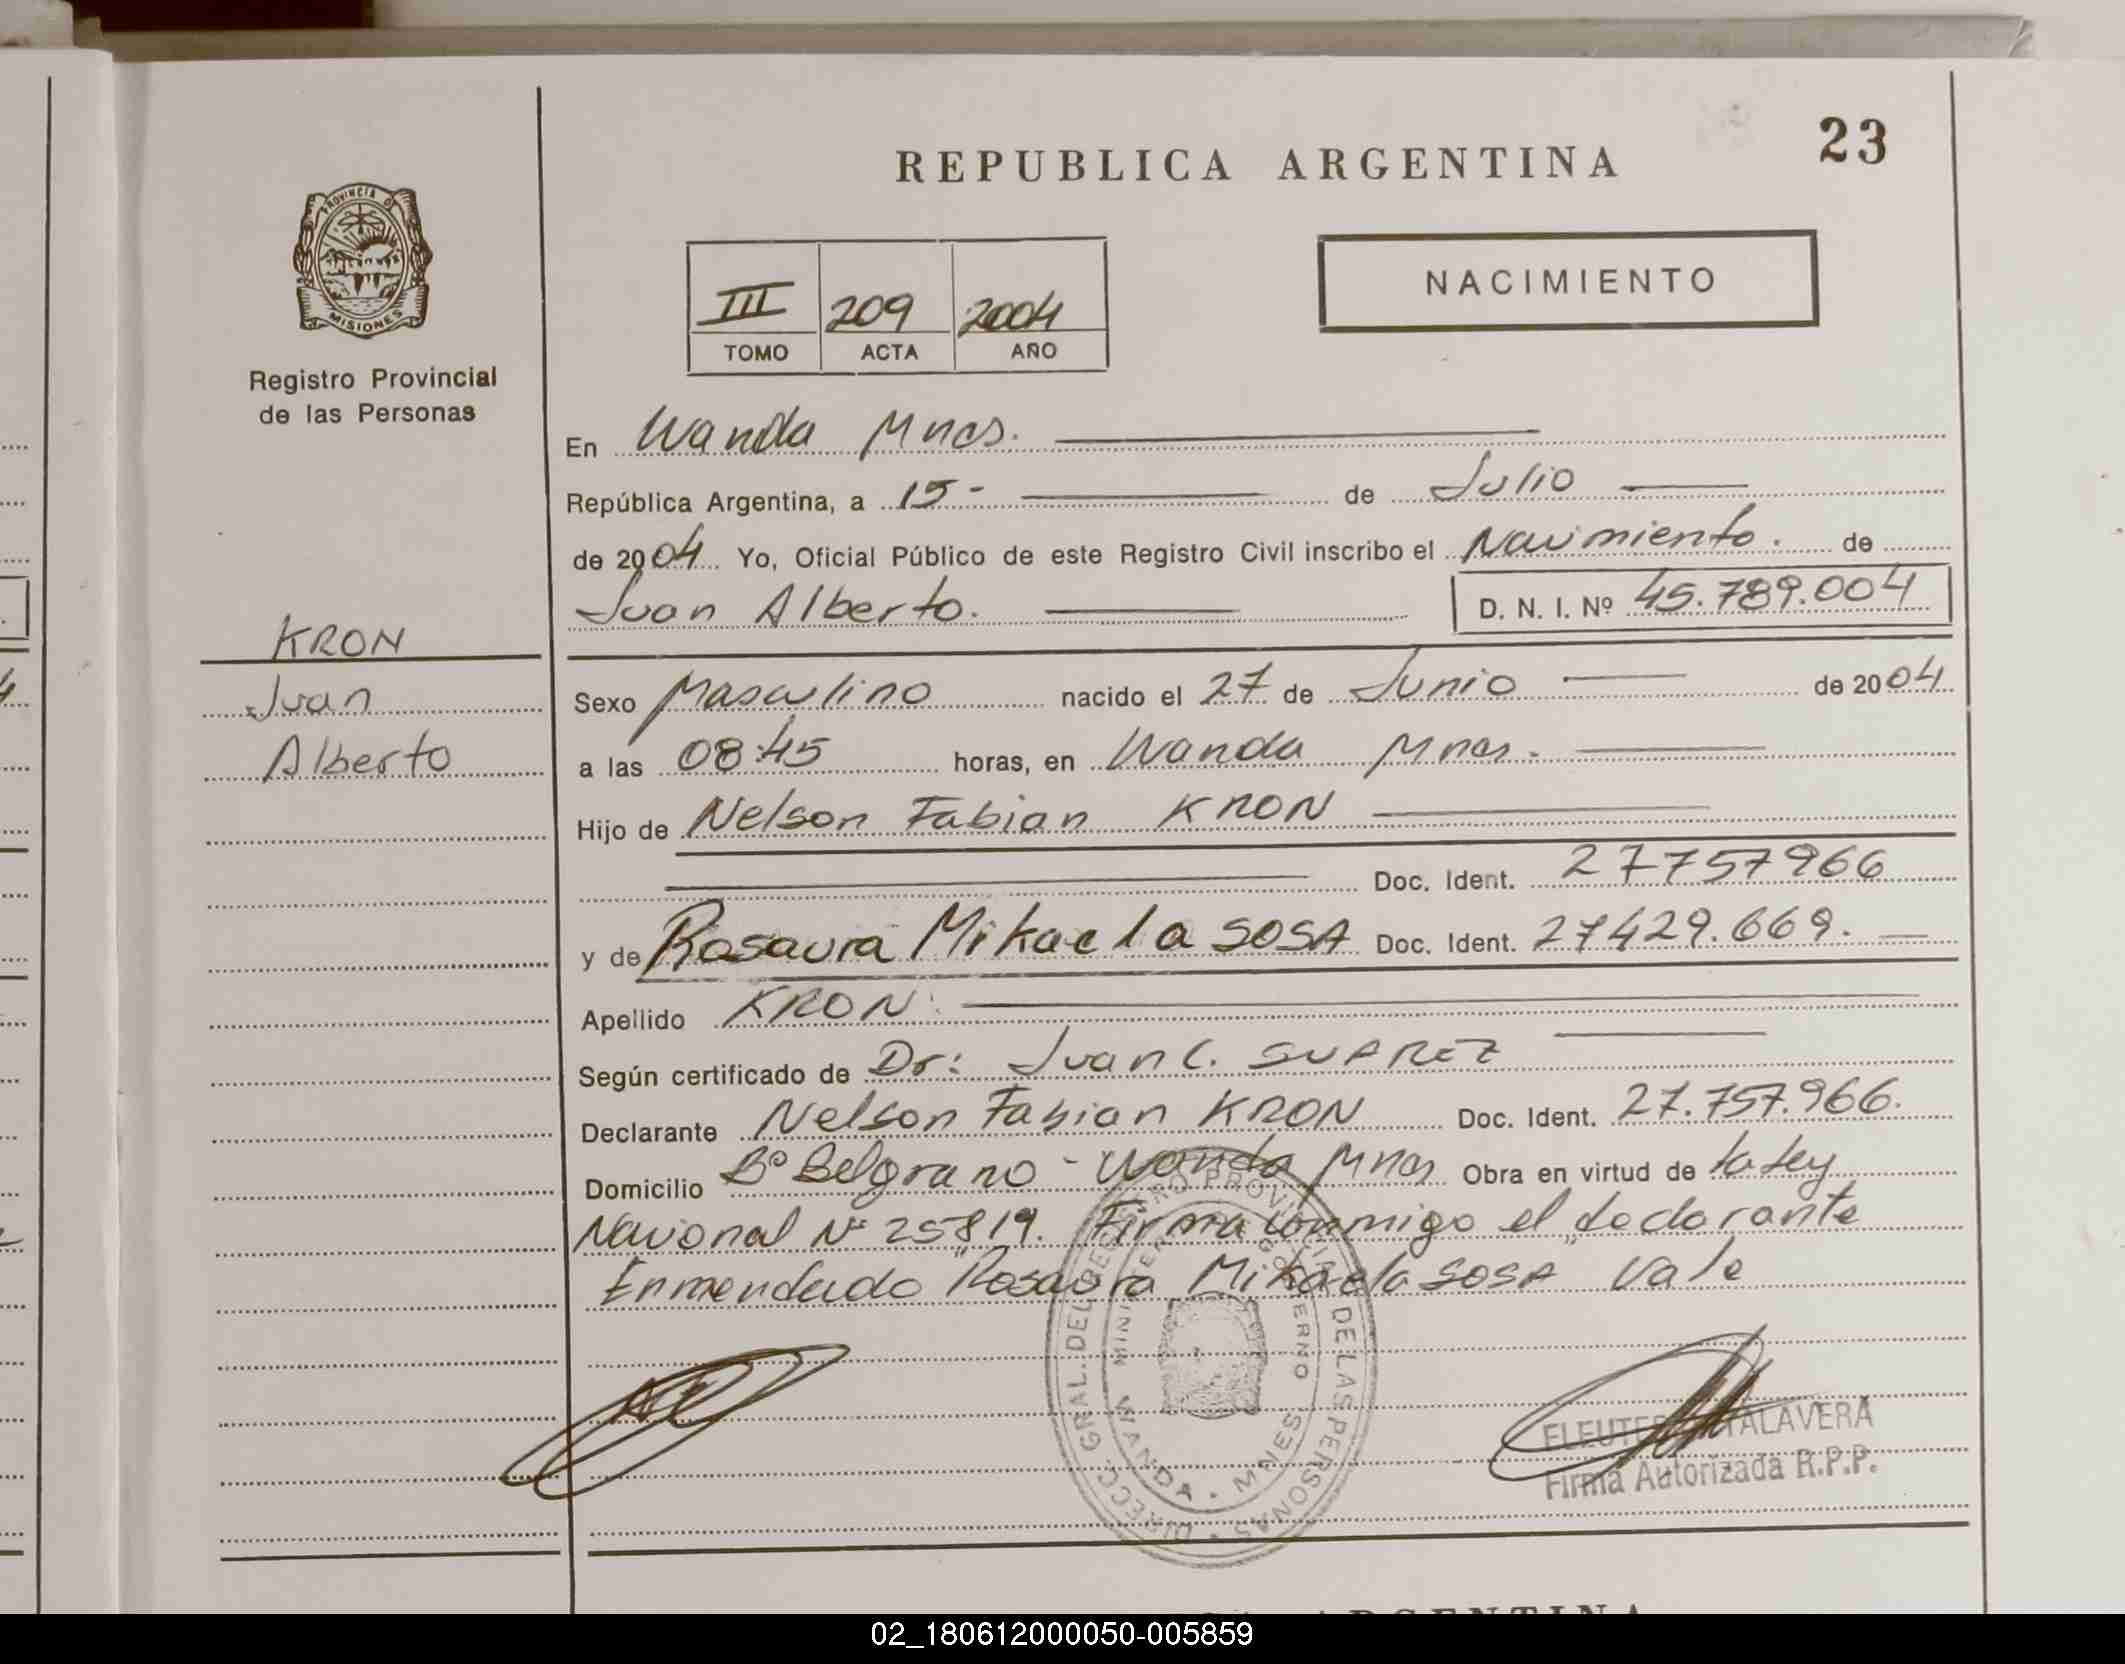 REPUBLICA ARGENTINA
23
NACIMIENTO
III 209 2004
TOMO ACTA AÑO
PROVINCIA DE
MISIONES
Registro Provincial
de las Personas
KRON
Juan
Alberto
En Wanda Mnes.
República Argentina, a 15- de Julio
de 2004 Yo, Oficial Público de este Registro Civil inscribo el Nacimiento. de
Juan Alberto. D. N. I. Nº 45.789.004
Sexo Masculino nacido el 27 de Junio de 2004
a las 08:45 horas, en Wanda Mnes.
Hijo de Nelson Fabian KRON
Doc. Ident. 27757966
y de Rosaura Mikaela SOSA Doc. Ident. 27429.669.
Apellido KRON
Según certificado de Dr: Juan C. SUAREZ
Declarante Nelson Fabian KRON Doc. Ident. 27.757.966.
Domicilio Bº Belgrano - Wanda Mnes Obra en virtud de la Ley
Nacional Nº 25819. Firma conmigo el declarante
Enmendado "Rosaura Mikaela SOSA" Vale
DIRECC. GRAL. DEL REGISTRO PROVINCIAL DE LAS PERSONAS
MINISTERIO DE GOBIERNO
WANDA - MNES
TALAVERA
Firma Autorizada R.P.P.
ARGENTINA
02_180612000050-005859